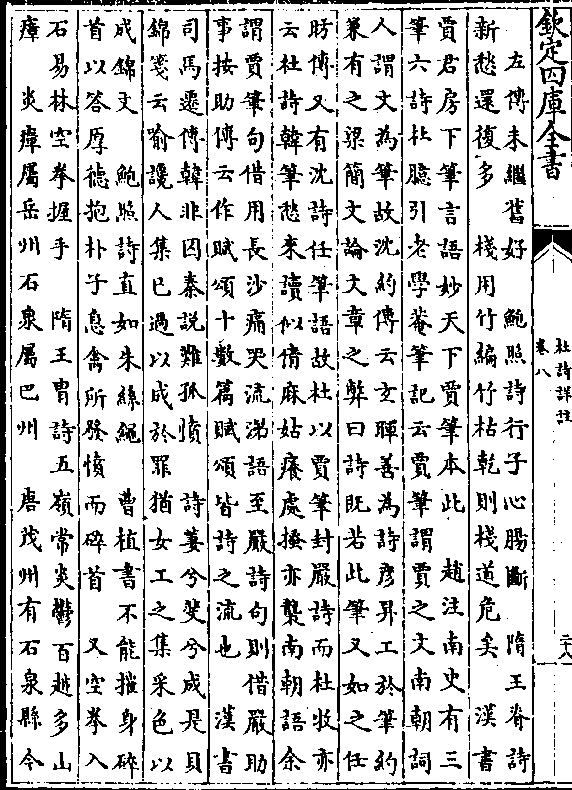 欽定四庫全書
杜詩詳註
卷八
二十八
左傳未繼舊好　鮑照詩行子心腸斷　隋王脊詩
新愁還復多　棧用竹編竹枯乾則棧道危矣　漢書
賈君房下筆言語妙天下賈筆本此　趙注南史有三
筆六詩杜臆引老學菴筆記云賈筆謂賈之文南朝詞
人謂文為筆故沈約傳云玄暉善為詩彥昇工於筆約
兼有之梁簡文論文章之弊曰詩既若此筆又如之任
昉傳又有沈詩任筆語故杜以賈筆封嚴詩而杜牧亦
云杜詩韓筆愁來讀似倩麻姑癢處搔亦襲南朝語余
謂賈筆句借用長沙痛哭流涕語至嚴詩句則借嚴助
事按助傳云作賦頌十數篇賦頌皆詩之流也　漢書
司馬遷傳韓非囚秦說難孤憤　詩萋兮斐兮成是貝
錦箋云喻讒人集已過以成於罪猶女工之集采色以
成錦文　鮑照詩直如朱絲繩　曹植書不能摧身碎
首以答厚德抱朴子息禽所發憤而碎首　又空拳入
石易林空拳握手　隋王冑詩五嶺常炎鬱百越多山
瘴　炎瘴屬岳州石泉屬巴州　唐茂州有石泉縣今